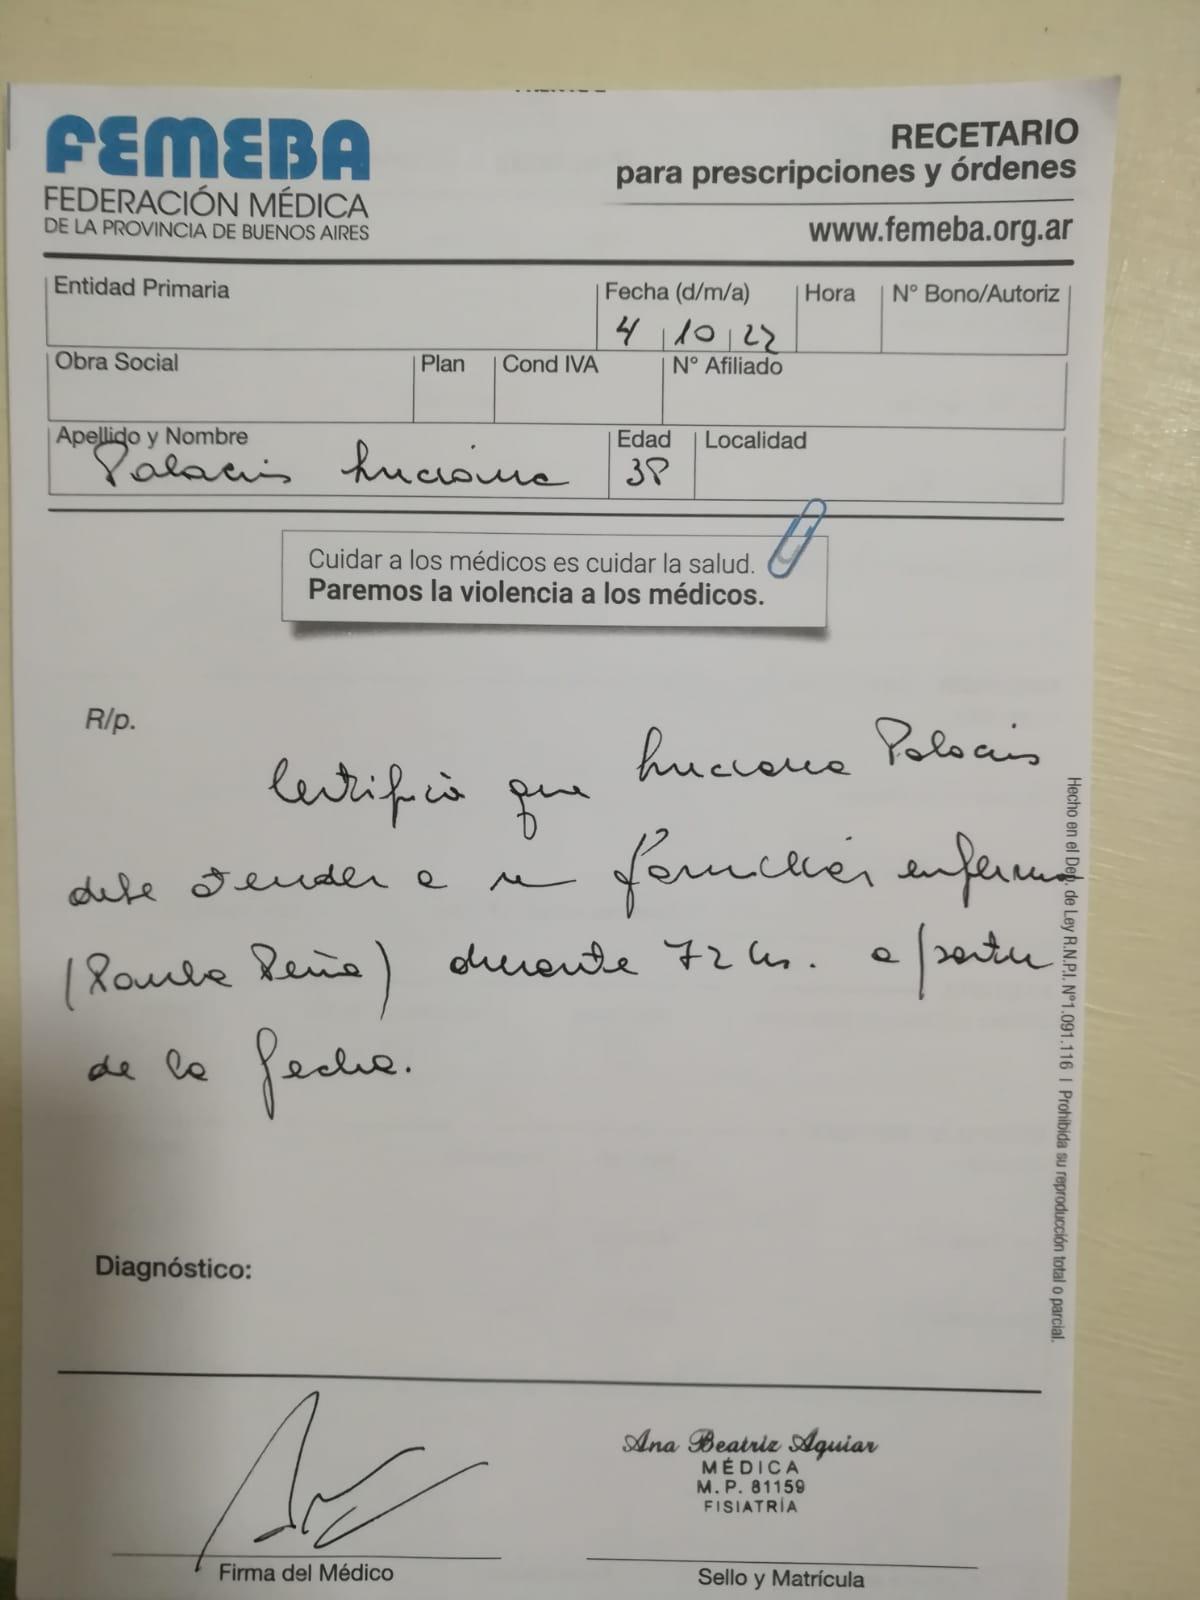 FEMEBA
FEDERACIÓN MÉDICA
DE LA PROVINCIA DE BUENOS AIRES
RECETARIO
para prescripciones y órdenes
www.femeba.org.ar
Entidad Primaria
Fecha (d/m/a)
4 10 22
Hora
N° Bono/Autoriz
Obra Social
Plan
Cond IVA
N° Afiliado
Apellido y Nombre
Palacios Luciana
Edad
38
Localidad
Cuidar a los médicos es cuidar la salud.
Paremos la violencia a los médicos.
R/p.
Certifico que Luciana Palacios
debe atender a su familiar enfermo
( Peña) durante 72 hs. a partir
de la fecha.
Diagnóstico:
Hecho en el Dep. de Ley R.N.P.I. N°1.091.116 | Prohibida su reproducción total o parcial.
Ana Beatriz Aguiar
MÉDICA
M.P. 81159
FISIATRÍA
Firma del Médico
Sello y Matrícula